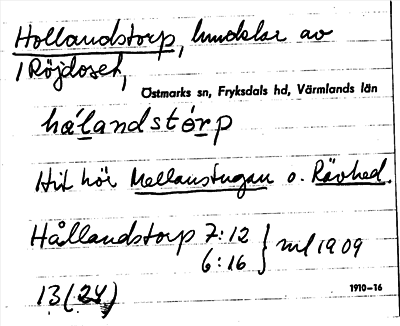 Hollandstorp, hundelar av
1 Röjdoset,
Östmarks sn, Fryksdals hd, Värmlands län
hálandstórp
Hit hör Mellanstugan o. Rävhed.
Hållandstorp 7:12
6:16 } ml 1909
13 (24)
1910–16